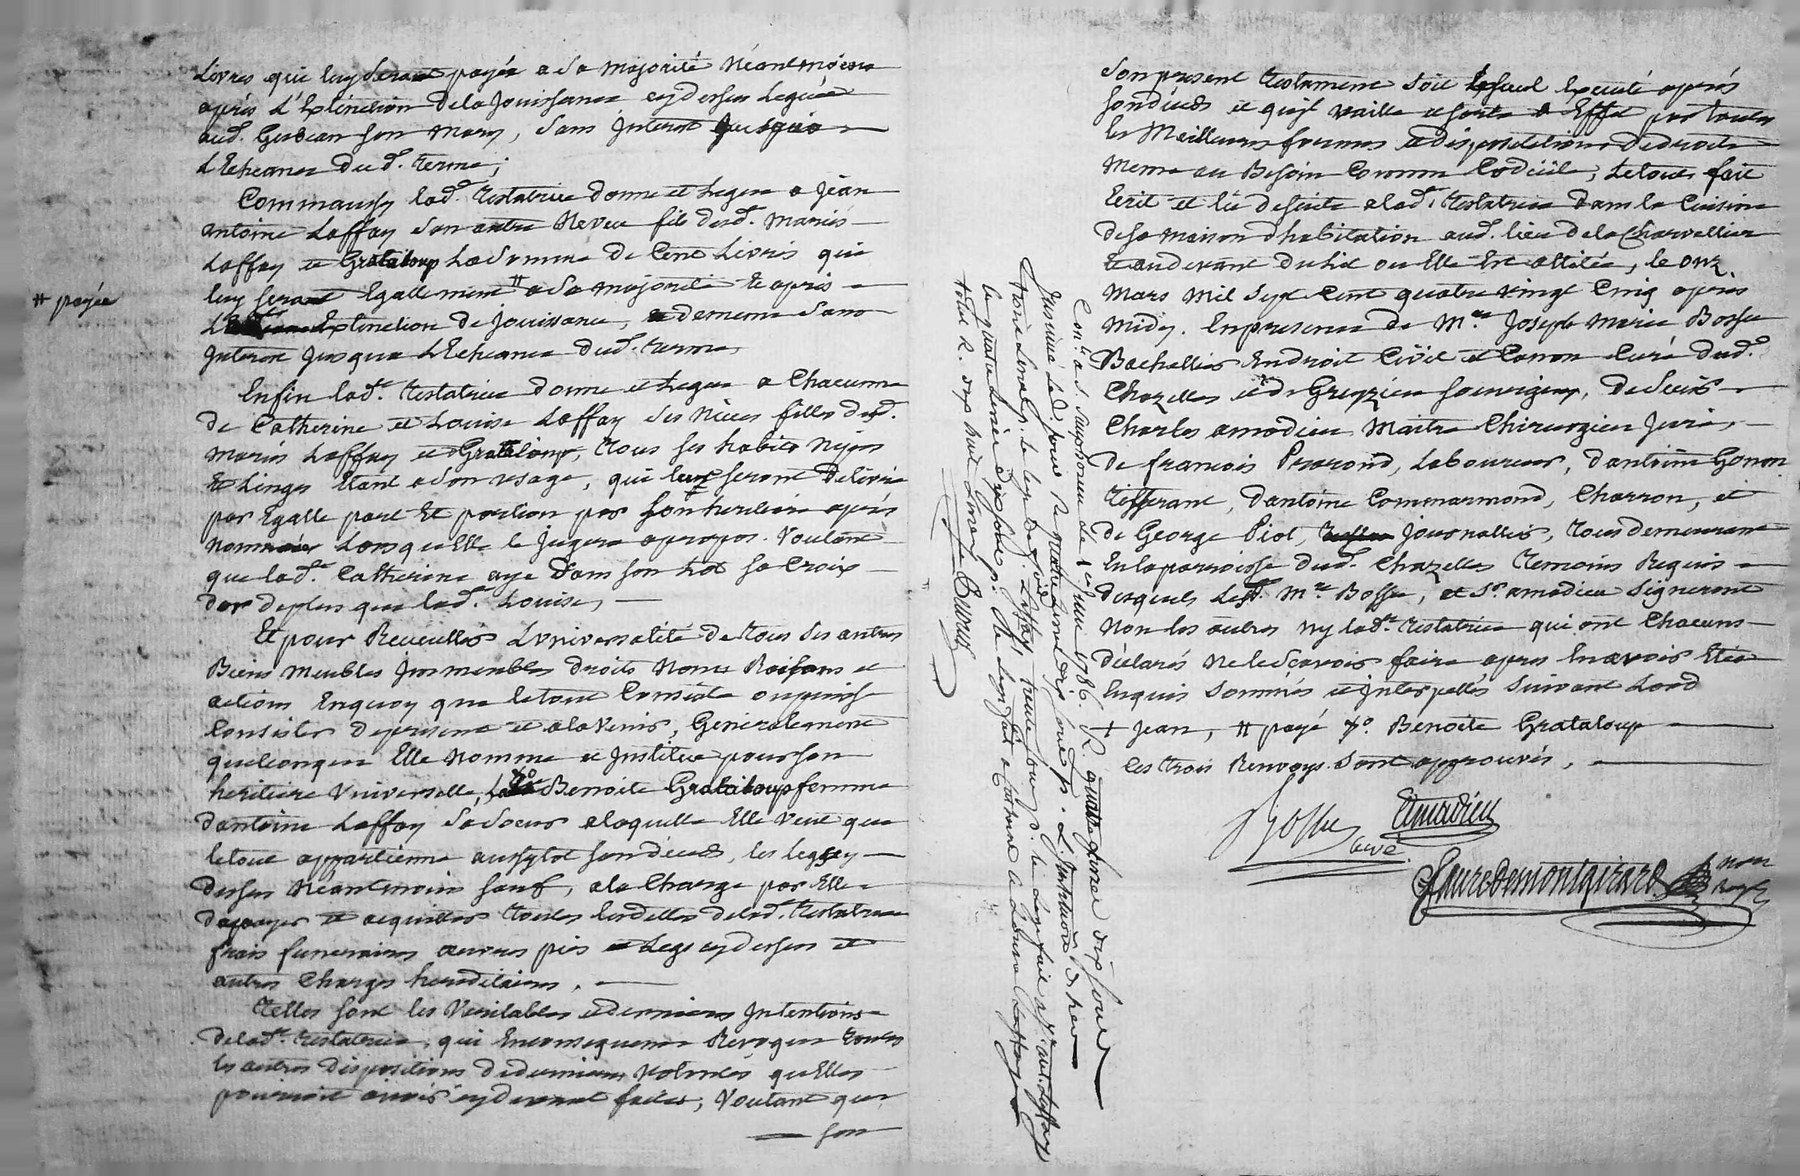 Livres qui luy seront payée a Sa Majorité Néantmoins
après L'Extinction de la Jouissance cy dessus Leguée
aud. Gerbean son Mary, Sans Interest Jusquà
L'Echeance Dud. terme;
Comm'aussy lad. Testatrice donne et Legue a Jean
antoine Laffay Son autre Neveu fils desd. Mariés
Laffay et Grataloup La Somme de Cent Livres qui
luy seront Egallement # a Sa Majorité Et après
# payée
L'Extinction de Jouissance, et de meme Sans
Interest Jusqua L'Echeance Dud. terme,
Enfin lad. Testatrice donne et Legue a Chacune
de Catherine et Louise Laffay Ses Nièces filles desd.
Mariés Laffay et Grataloup, tous ses habits Nipes
Et Linges Etant a Son usage, qui leur seront Delivré
par Egalle part Et portion par son heritiere après
Nommée Lorsqu'Elle le Jugera apropos. Voulant
que lad. Catherine aye Dans son Lot Sa Croix
Dor de plus que lad. Louise,
Et pour Recueullir L'universalité de tous Ses autres
Biens Meubles Immeubles Droits Noms Raisons et
actions Enquoy que letout Consiste ou puisse
Consister Depresent et alavenir, Generalement
quelconques Elle Nomme et Institue pour son
heritiere Universelle, 7o. Benoite Grataloup femme
Dantoine Laffay Sa Soeur a laquelle Elle veut que
letout appartienne aussytot son deceds, les legs cy
dessus Néantmoins sauf, a la Charge par Elle
De payer et acquitter toutes les dettes de lad. Testatrice
frais funeraires oeuvres pies et Legs cy dessus et
autres Charges hereditaires.
Telles sont les Veritables et dernieres Intentions
de lad. Testatrice, qui Enconsequence Revoque toutes
les autres Dispositions de dernieres Volontés qu'Elles
pourroit avoir cy devant faites; Voulant que
son
Son present Testament Soit le seul Executé après
son décéds et qu'il vaille et sorte a Effet par toutes
les Meilleures formes et dispositions De droit
Meme au Besoin Comme Codicile; Letout fait
Ecrit et lû de suite a lad. Testatrice Dans la Cuisine
de sa Maison dhabitation aud. lieu de la Charvellier
et audevant Du Lit ou Elle Est allitée, le onze
Mars Mil Sept Cent quatre vingt Cinq après
Midy. En presence de Mre. Joseph Marie Bosse
Bachellier En droit Civil et Canon Curé dud.
Chazelles et de Grezieu Souvigny, De Sieur
Charles amadieu Maitre Chirurgien Juré,
de francois Prarond, Laboureur, Dantoine Gonon
Tisserant, Dantoine Commarmond, Charron, et
de George Piot, Journallier, tous demeurant
En la parroisse dud. Chazelles temoins Requis
desquels Led. Mre. Bosse, et Sr. amadieu Signeront
Non les autres ny lad. Testatrice qui ont Chacuns
Déclarés Ne le Scavoir faire apres En avoir Etés
Enquis Sommés et Interpellés Suivant Lord
+ Jean, # payé 7o. Benoite Grataloup
les trois Renvoys sont approuvés.
Bosse
curé
Amadieu
Fauredemontgirard
not.
Royl
Con.le a S. Saphorien le 1er Juin 1786. R. quatre livres dix sous